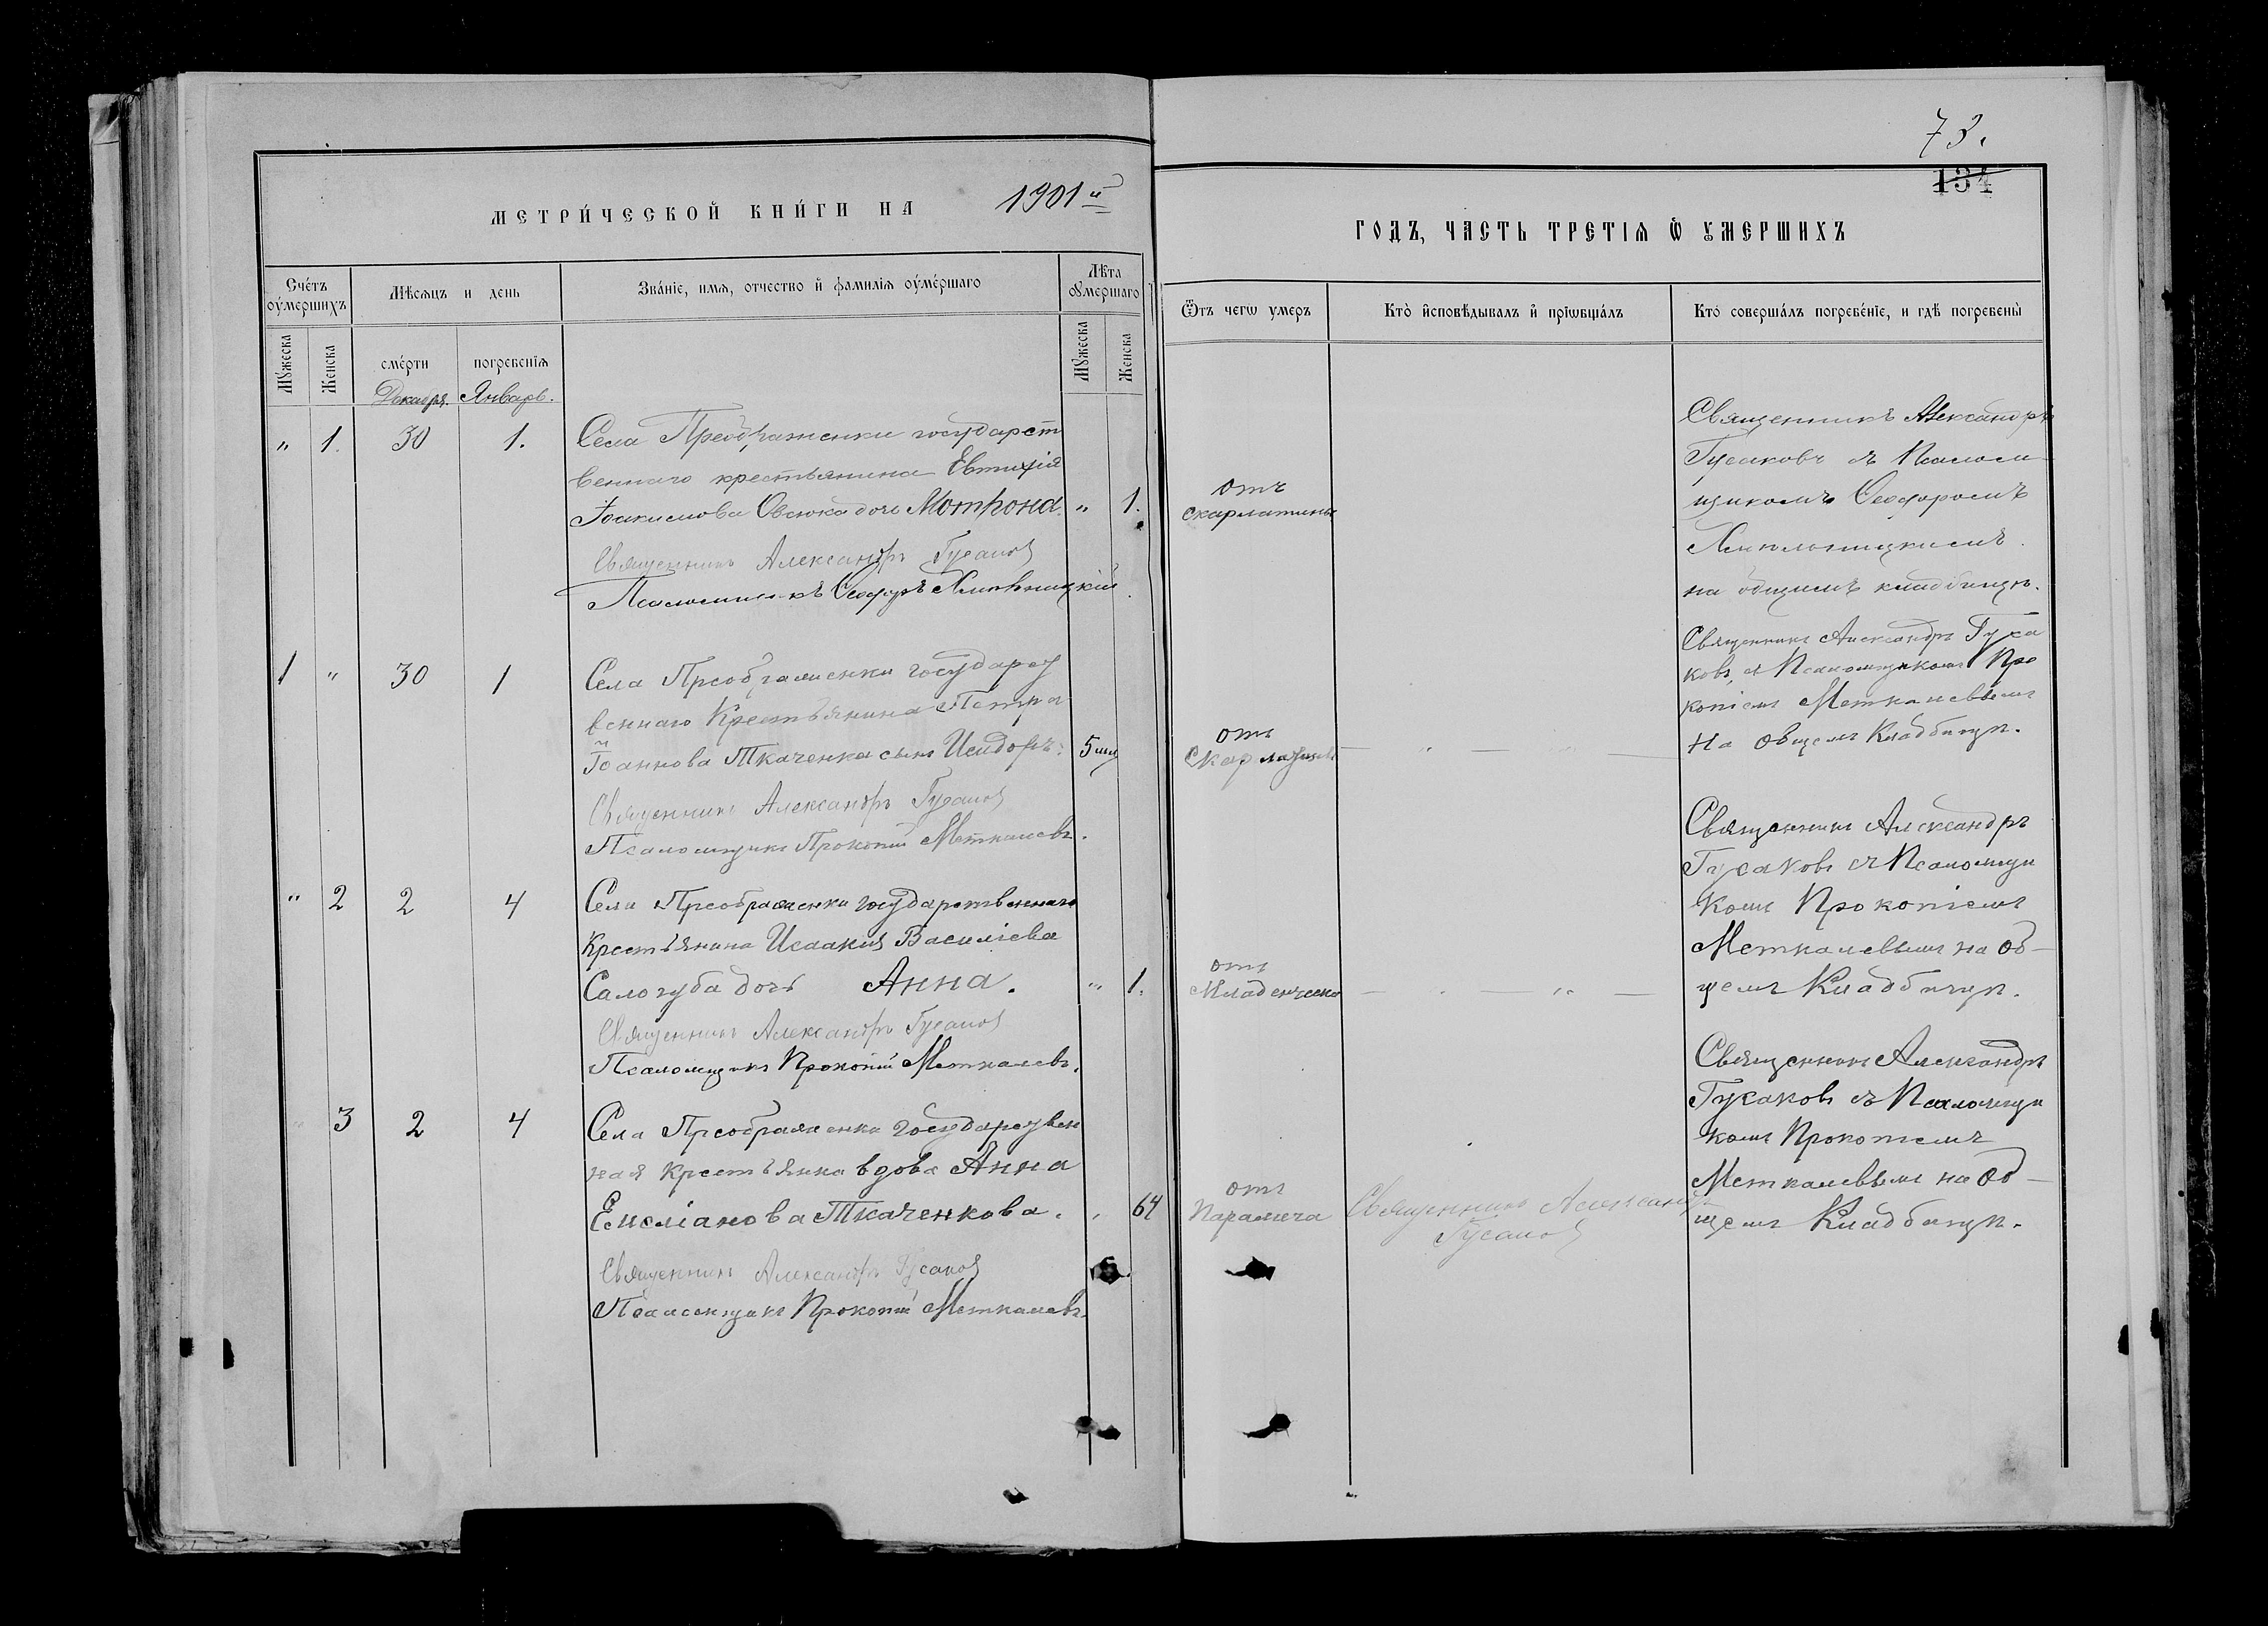 73.
134
МЕТРИ́ЧЕСКОЙ КНИ́ГИ НА 1901 й
ГОДЪ, ЧАСТЬ ТРЕТІѦ Ѿ УМЕРШИХЪ
Сче́тъ оу҆ме́ршихъ
Мѣсяцъ и день
Зва́ніе, имя, отчество и҆ фамилія оу҆ме́ршаго
Лѣта оумершаго
Мужеска
Женска
сме́рти
погребенія
Мужеска
Женска
Декабря. Январь.
Ѿтъ чегѡ умеръ
Кто̀ и҆сповѣдывалъ и҆ прїѡбща́лъ
Кто̀ соверша́лъ погребе́ніе, и гдѣ погребены̀
„ 1. 30 1.
Села Преображенки государст
веннаго крестьянина Евтихія
Іоакимова Овсюка дочь Мотрона. „ 1.
Священникъ Александръ Гусаковъ
Псаломщикъ Ѳеодоръ
отъ
скарлатины
Священникъ Александръ
Гусаковъ съ Псалом
щикомъ Ѳеодоромъ
на общемъ кладбищѣ.
1 „ 30 1
Села Преображенки государст
веннаго Крестьянина Петра
Іоаннова Ткаченка сынъ Исидоръ. 5 м
Священникъ Александръ Гусаковъ
Псаломщикъ Прокопій Меткалевъ.
отъ
Скарлатины — „ — „ —
Священникъ Александръ Гуса
ковъ, съ Псаломщикомъ Про
копіемъ Меткалевымъ
На общемъ Кладбищѣ.
„ 2 2 4
Села Преображенки государственнаго
Крестьянина Исаакія Василіева
Салогуба дочь Анна. „ 1.
Священникъ Александръ Гусаковъ
Псаломщикъ Прокопій Меткалевъ.
отъ
Младенческой — „ — „ —
Священникъ Александръ
Гусаковъ съ Псаломщи
комъ Прокопіемъ
Меткалевымъ на об-
щемъ Кладбищѣ.
„ 3 2 4
Села Преображенки государствен
ная крестьянка вдова Анна
Емеліанова Ткаченкова. „ 64
Священникъ Александръ Гусаковъ
Псаломщикъ Прокопій Меткалевъ.
отъ
Паралича
Священникъ Александръ
Гусаковъ
Священникъ Александръ
Гусаковъ съ Псаломщи
комъ Прокопіемъ
Меткалевымъ на об-
щемъ Кладбищѣ.